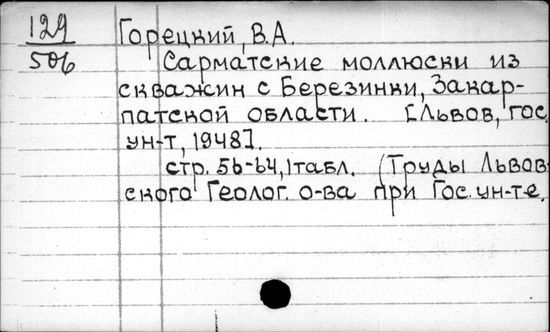 129
506
Горецкий, В.А.
Сарматские моллюски из
скважин с Березинки, Закар-
патской области. [Львов, гос.
ун-т, 1948].
стр. 56-64, 1 табл. (Труды Львов-
ского Геолог. о-ва при Гос. ун-те.